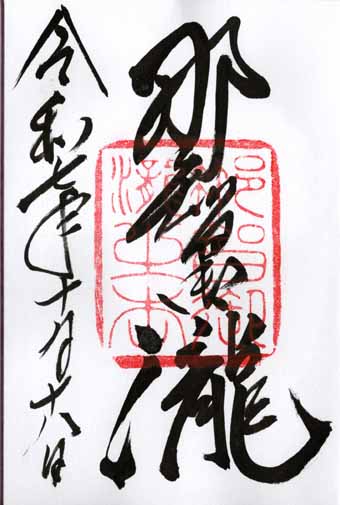 那智御瀧
令和七年十月十八日